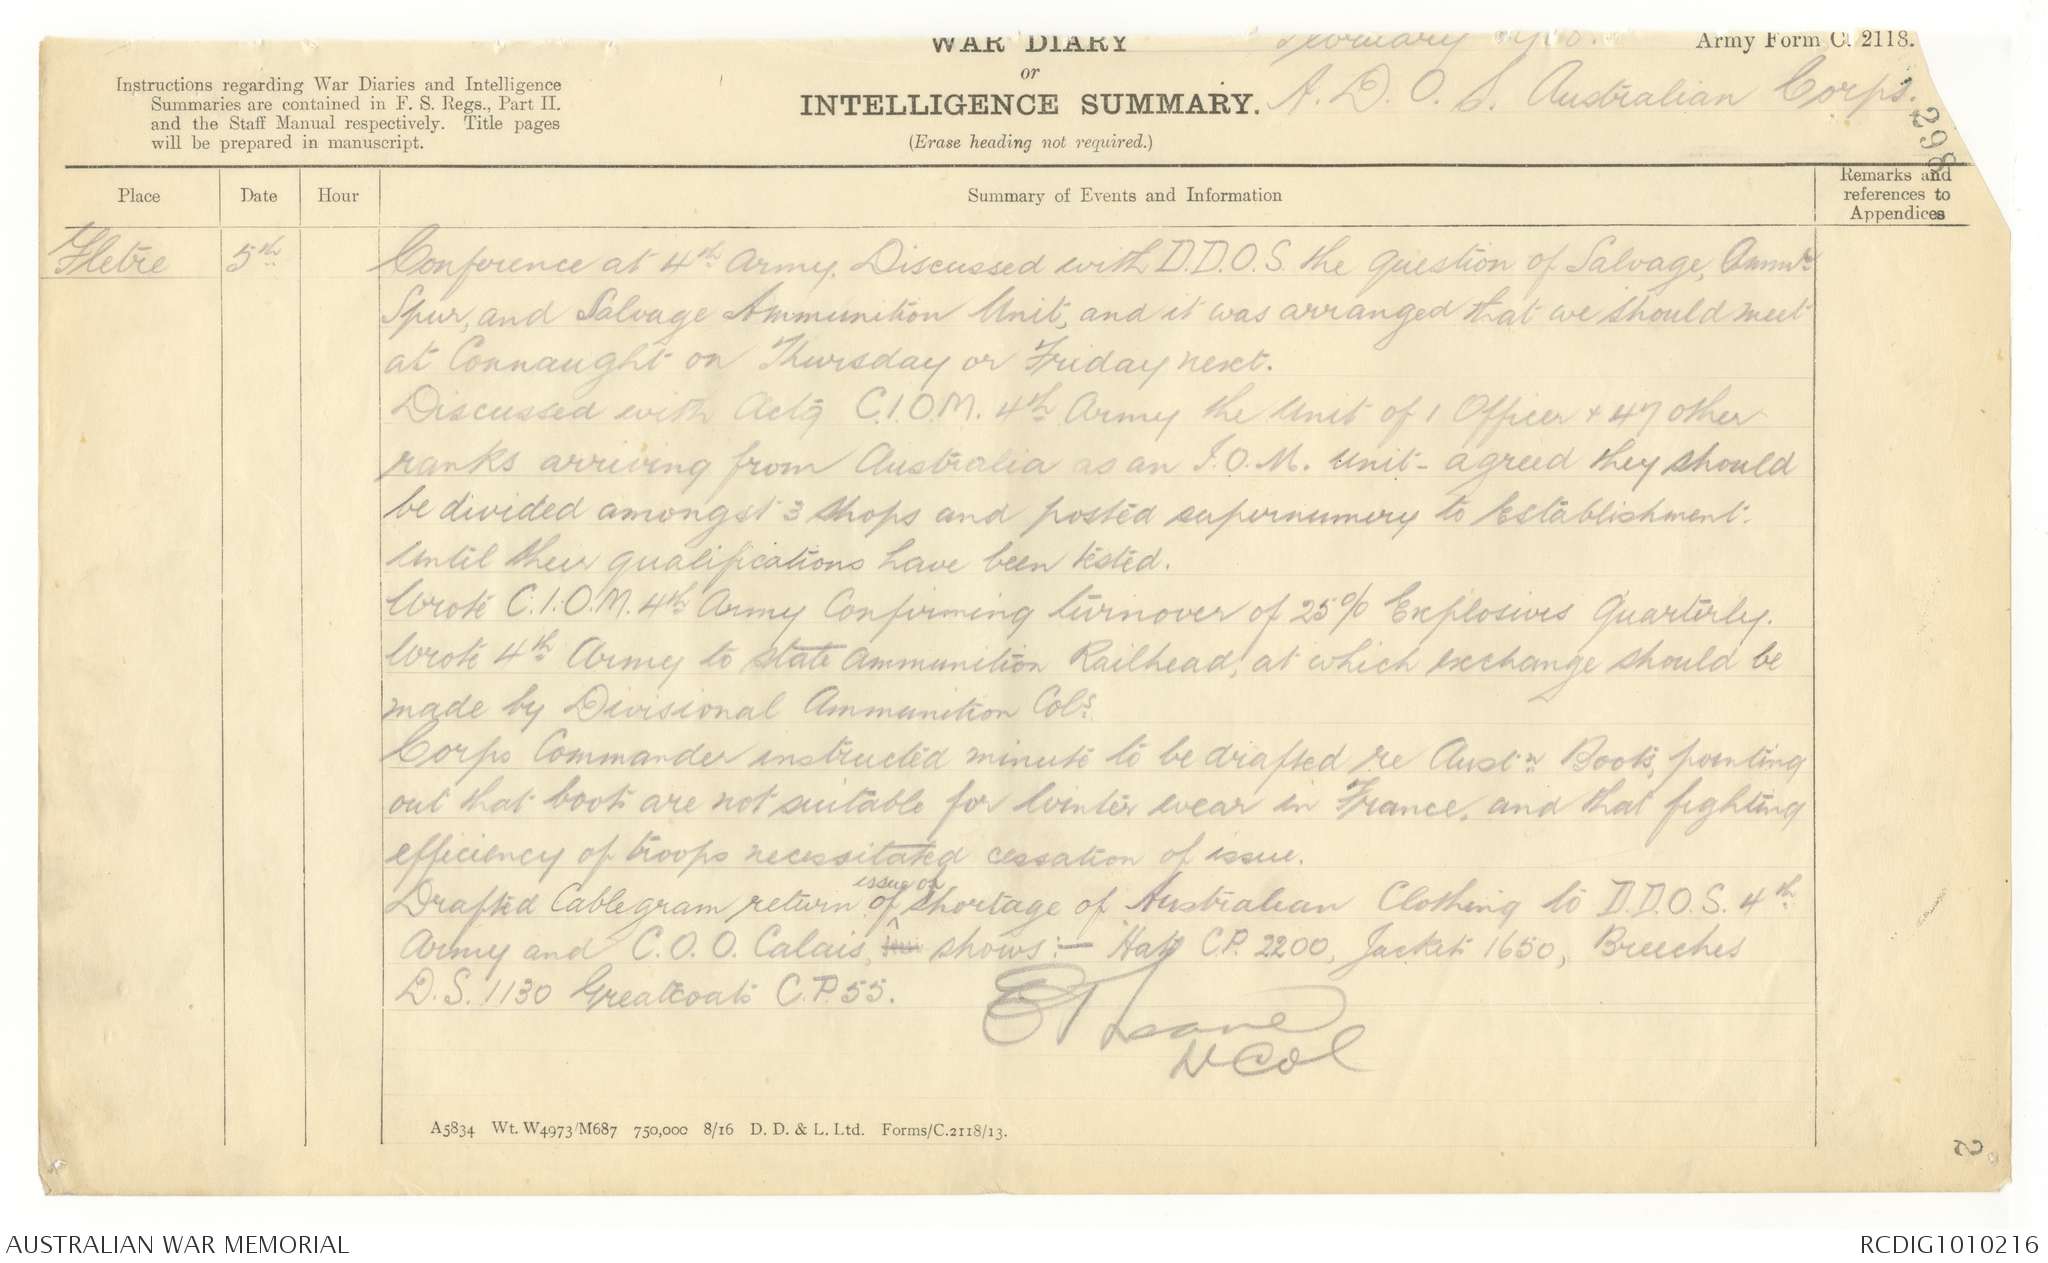 WAR DIARY
or
INTELLIGENCE SUMMARY.
(Erase heading not required.)
February
A. D. O. S. Australian Corps.
Army Form C. 2118.
298
Instructions regarding War Diaries and Intelligence
Summaries are contained in F. S. Regs., Part II.
and the Staff Manual respectively. Title pages
will be prepared in manuscript.
Place Date Hour Summary of Events and Information Remarks and references to Appendices
Fletre 5th Conference at 4th Army. Discussed with D.D.O.S. the question of Salvage, Ammn
Spur, and Salvage Ammunition Unit, and it was arranged that we should meet
at Connaught on Thursday or Friday next.
Discussed with Actg C.I.O.M. 4th Army the Unit of 1 Officer & 47 other
ranks arriving from Australia as an I.O.M. Unit - agreed they should
be divided amongst 3 shops and posted supernumery to Establishment.
until their qualifications have been tested.
Wrote C.I.O.M. 4th Army Confirming turnover of 25% Explosives Quarterly.
Wrote 4th Army to state Ammunition Railhead, at which exchange should be
made by Divisional Ammunition Cols.
Corps Commander instructed minute to be drafted re Austn Boots, pointing
out that boots are not suitable for Winter wear in France, and that fighting
efficiency of troops necessitated cessation of issue.
issue or
Drafted Cablegram return of shortage of Australian Clothing to D.D.O.S. 4th
Army and C.O.O. Calais, shows:- Hats C.P. 2200, Jackets 1650, Breeches
D.S. 1130 Greatcoats C.P. 55.
Col
A5834 Wt. W4973/M687 750,000 8/16 D. D. & L. Ltd. Forms/C.2118/13.
2
AUSTRALIAN WAR MEMORIAL
RCDIG1010216